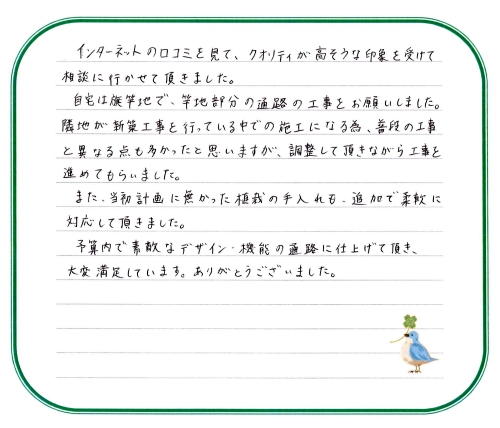 インターネットの口コミを見て、クオリティが高そうな印象を受けて
相談に行かせて頂きました。
自宅は旗竿地で、竿地部分の通路の工事をお願いしました。
隣地が新築工事を行っている中での施工になる為、普段の工事
と異なる点も多かったと思いますが、調整して頂きながら工事を
進めてもらいました。
また、当初計画に無かった植栽の手入れも、追加で柔軟に
対応して頂きました。
予算内で素敵なデザイン・機能の通路に仕上げて頂き、
大変満足しています。ありがとうございました。